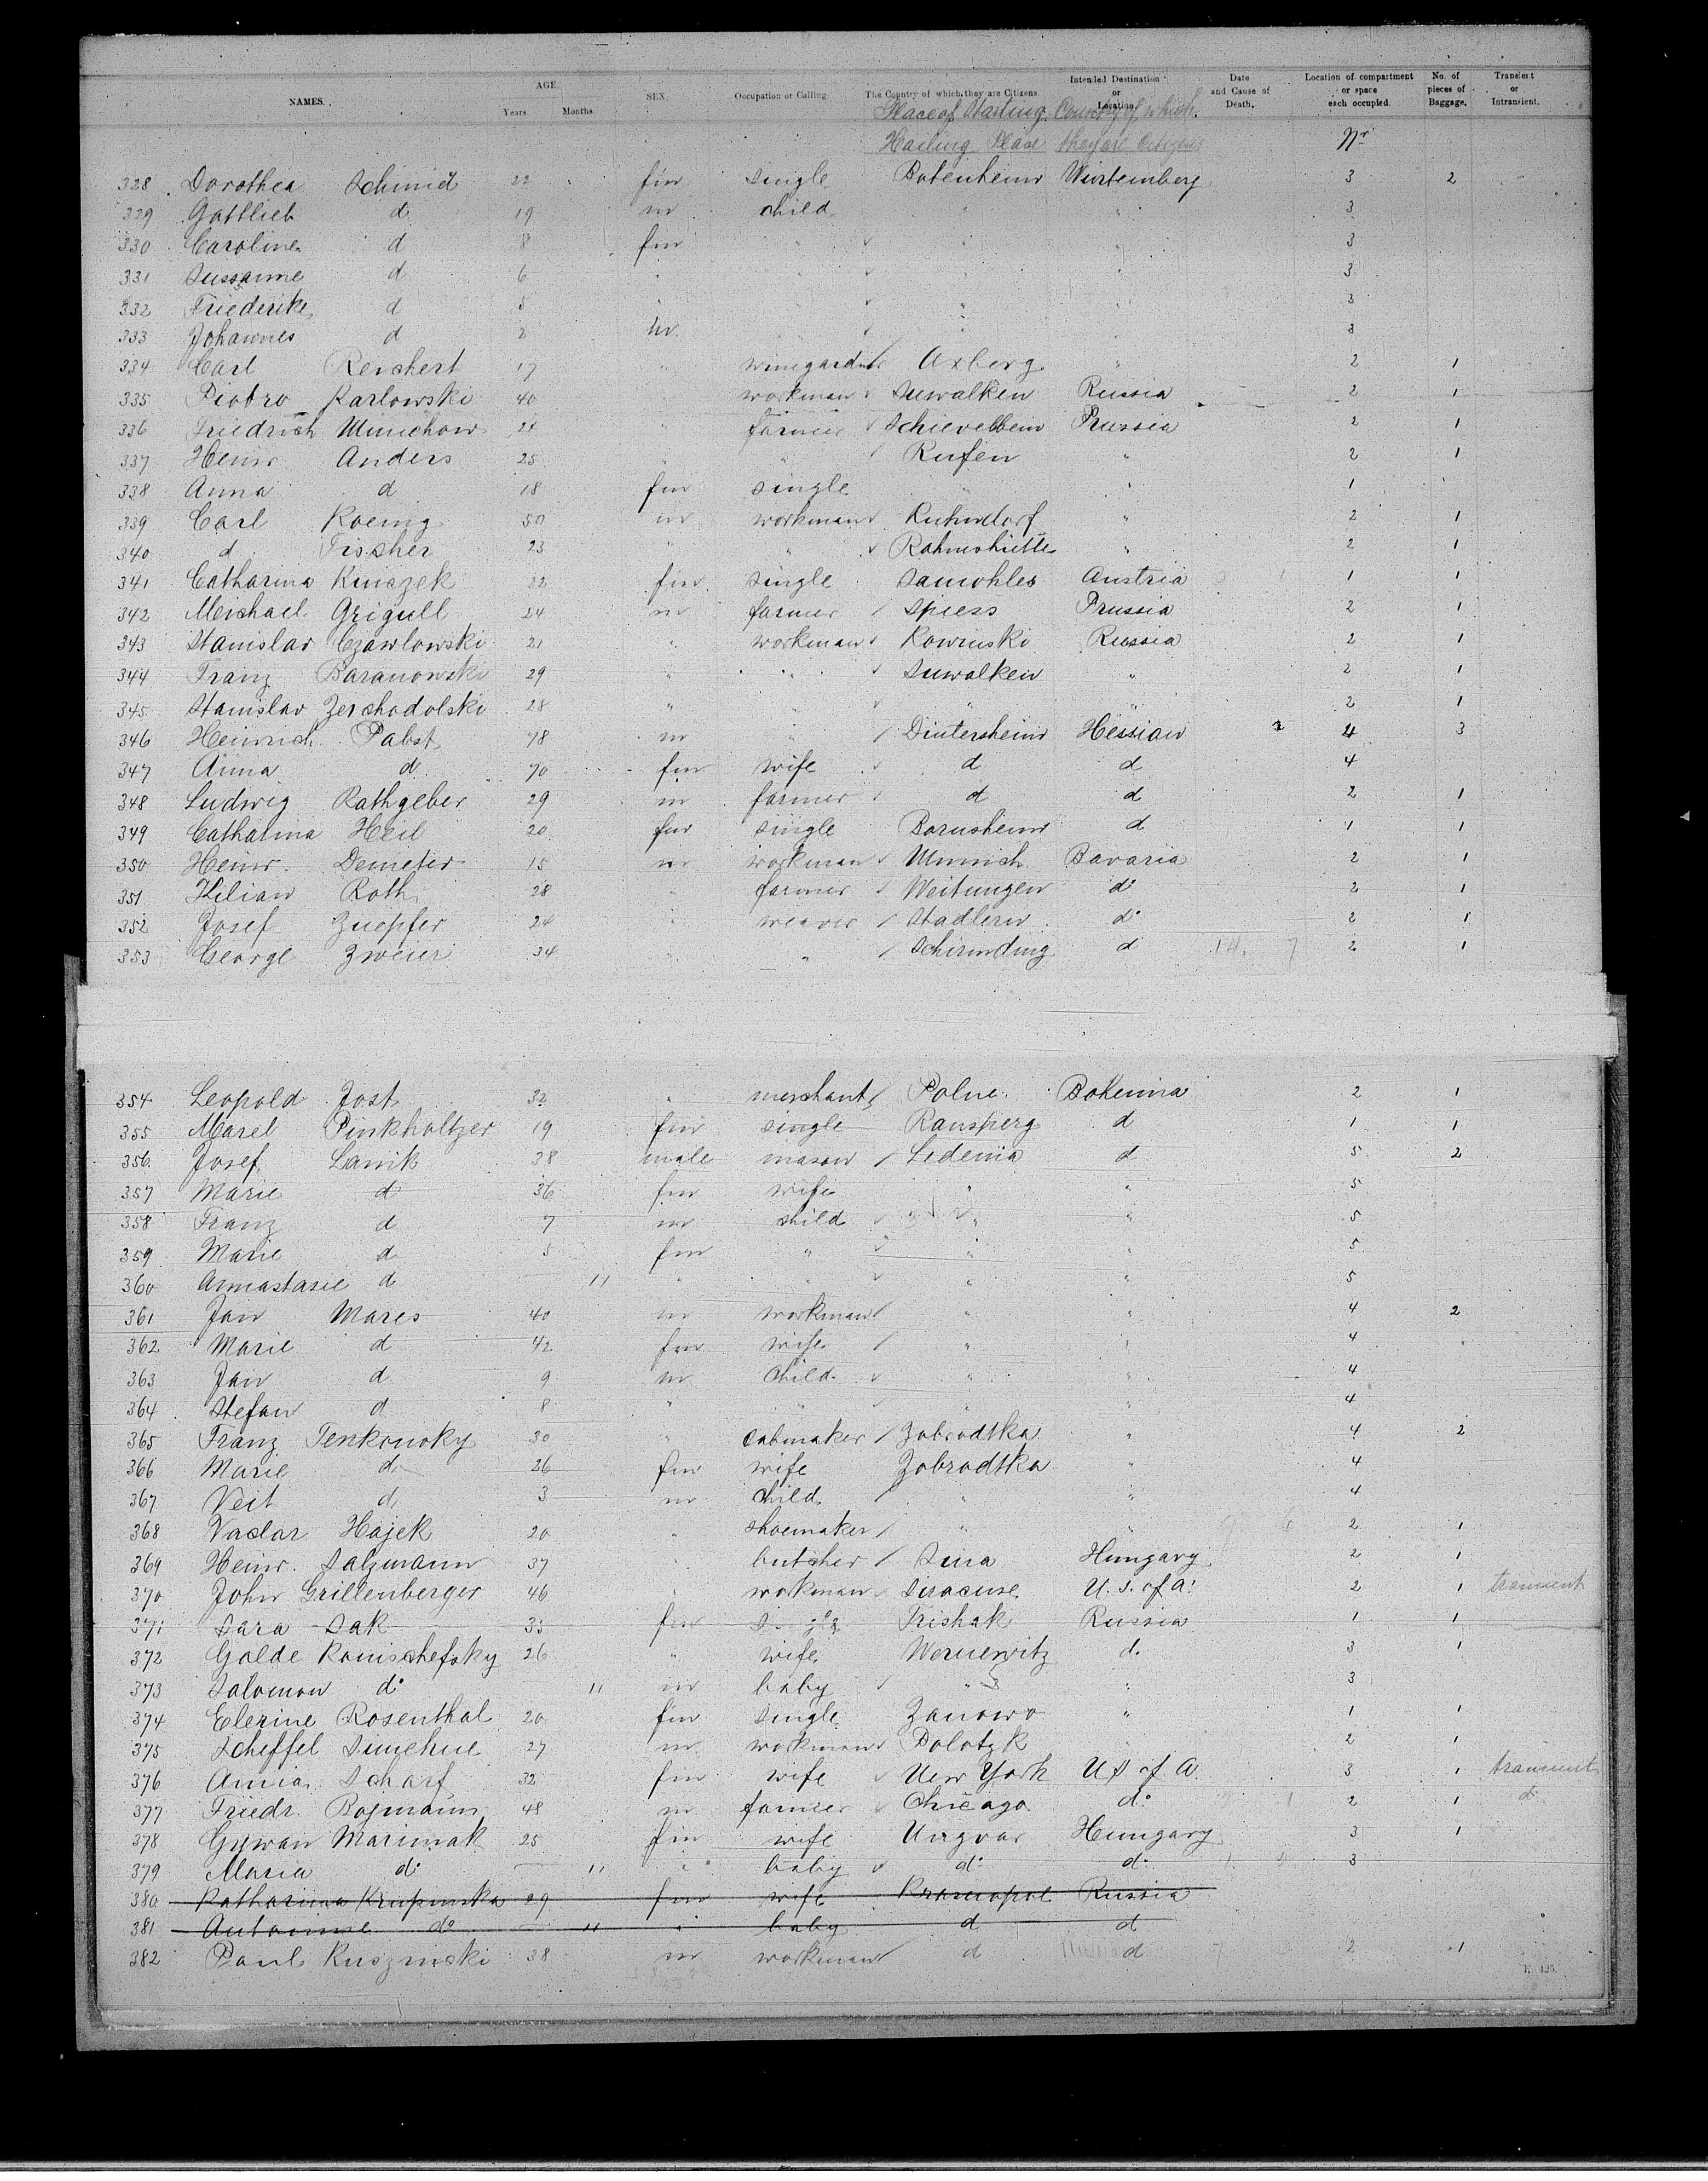 NAMES. AGE. Years. Months. SEX. Occupation or Calling The Country of which they are Citizens. Intended Destination or Location. Date and Cause of Death. Location of compartment or space each occupied. No. of pieces of Baggage. Transient or Intransient.
Place of Starting. Country of which
Hailing Place they are Citizens Nr
328 Dorothea Schmid 22 fm single Botenheim Würtemberg 3 2
329 Gottlieb d 19 m child " " 3
330 Caroline d 8 fm " " " 3
331 Sussanne d 6 " " " " 3
332 Friederike d 5 " " " " 3
333 Johannes d 2 m " " 3
334 Carl Reichert 17 " winegardner Axberg " 2 1
335 Piotro Karlowski 40 workman Suwalken Russia 2 1
336 Friedrich Munchow 24 " farmer Schievelbein Prussia 2 1
337 Heinr Anders 25 " " Rufen " 2 1
338 Anna d 18 fm single " " 1
339 Carl Koenig 50 m workman Kuhndorf " 2 1
340 d Fischer 23 " " Rahmshütte " 2 1
341 Catharina Kniszek 22 fm single Samohles Austria 1 1
342 Meichael Grigull 24 m farmer Spiess Prussia 2 1
343 Stanislav Czawlowski 21 " workman Kowinski Russia 2 1
344 Franz Baranowski 29 " " Suwalken " 2 1
345 Stanislav Zerchodolski 28 " " " " 2 1
346 Heinrich Pabst 78 m " Dintersheim Hessian 4 3
347 Anna d 70 fm wife d d 4
348 Ludwig Rathgeber 29 m farmer d d 2 1
349 Catharina Heil 20 fm single Bornsheim d 1 1
350 Heinr. Demeter 15 m workman Munich Bavaria 2 1
351 Kilian Roth 28 " farmer Weitungen do 2 1
352 Josef Zuepfer 24 " weaver Stadlern do 2 1
353 George Zweier 34 " " Schirnding d 14. 7 2 1
354 Leopold Jost 32 " merchant Polne Bohemia 2 1
355 Marel Pinkholtzer 19 fm single Ransperg d 1 1
356 Josef Lanik 38 male mason Ledenia d 5 2
357 Marie d 36 fm wife " " 5
358 Franz d 7 m child " " 5
359 Marie d 5 fm " " " 5
360 Annastasie d 11 " " " " 5
361 Jan Mares 40 m workman " " 4 2
362 Marie d 42 fm wife " " 4
363 Jan d 9 m child " " 4
364 Stefan d 8 " " " " 4
365 Franz Tenkonoky 30 " cabmaker Zobrodtka " 4 2
366 Marie d 26 fm wife Zobrodtka " 4
367 Veit d 3 m child " " 4
368 Vaclav Hajek 20 " shoemaker " " 2 1
369 Heinr. Salzmann 37 " butcher Sina Hungary 2 1
370 John Grillenberger 46 " workman Siracuse U. S. of A. 2 1 transient
371 Sara Sak 33 fm single Trishak Russia 1 1
372 Golde Konischefsky 26 " wife Wernewitz d. 3 1
373 Salomon do 11 m baby " " 3
374 Elerine Rosenthal 20 fm single Zanowo " 1 1
375 Scheffel Sunehue 27 m workman Polotzk " 2 1
376 Annia Scharf 32 fm wife New York U S of A. 3 1 transient
377 Friedr. Bogmann 48 m farmer Chicago do 2 1 d
378 Gywan Marimak 25 fm wife Ungvar Hungary 3 1
379 Maria do 11 " baby do do 3
380 Katharina Krupinska 29 fm wife Krasnopol Russia
381 Antonine do 11 " baby d d
382 Paul Kuszinski 38 m workman d d 7 2 1